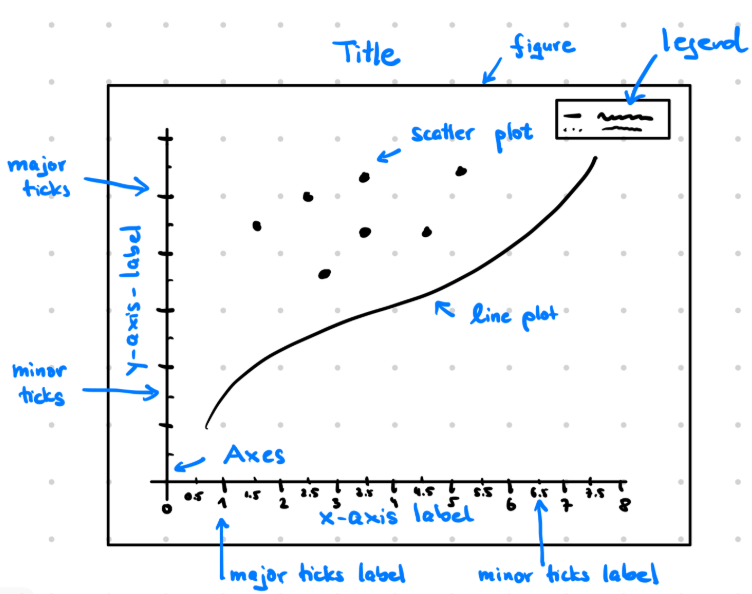 Title
figure
legend
scatter plot
major
ticks
y-axis-label
line plot
minor
ticks
Axes
0.5 1.5 2.5 3.5 4.5 5.5 6.5 7.5
0 1 2 3 4 5 6 7 8
x-axis label
major ticks label
minor ticks label